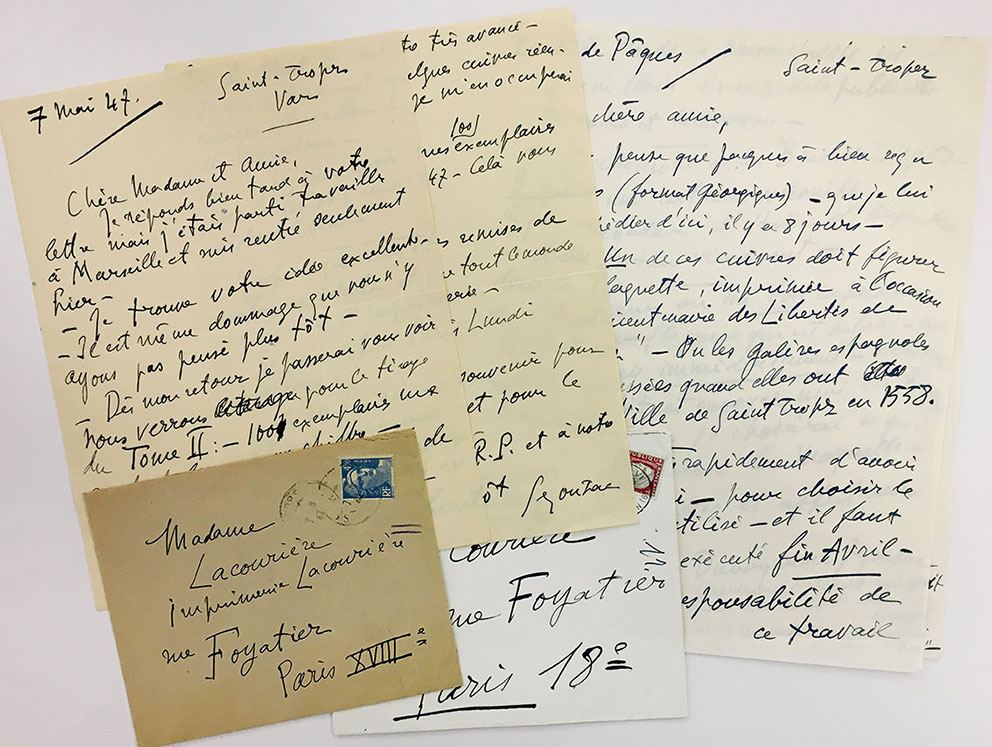 7 Mai 47.
Saint-Tropez
Var
Chère Madame et Amie,
Je réponds bien tard à votre
lettre mais j'étais parti travailler
à Marseille et suis rentré seulement
hier -
- Je trouve votre idée excellente -
- Il est même dommage que nous n'y
ayons pas pensé plus tôt -
- Dès mon retour je passerai vous voir
nous verrons pour le tirage
du Tome II : - 100 exemplaires
très avancé -
elques cuivres réen-
je m'en occuperai
100
exemplaires
47 - Celà vous
es remises de
e tout le monde
erie -
Lundi
souvenir pour
et pour le
R.P. et à notre
Segonzac
de Pâques
Saint-Tropez
chère amie,
pense que Jacques à bien reçu
s (format Géorgiques) - que je lui
édier d'ici, il y a 8 jours -
Un de ces cuivres doit figurer
laquette, imprimée à l'occasion
des Libertés de
" - Ou les galères espagnoles
ssées quand elles ont été
ville de Saint Tropez en 1558.
rapidement d'avoir
i - pour choisir le
utilisé - et il faut
exécuté fin Avril -
esponsabilité de
ce travail
RF
Madame
Lacourière
Imprimerie Lacourière
rue Foyatier
Paris XVIIIe
REPUBLIQUE
courière
rue Foyatier
Paris 18e